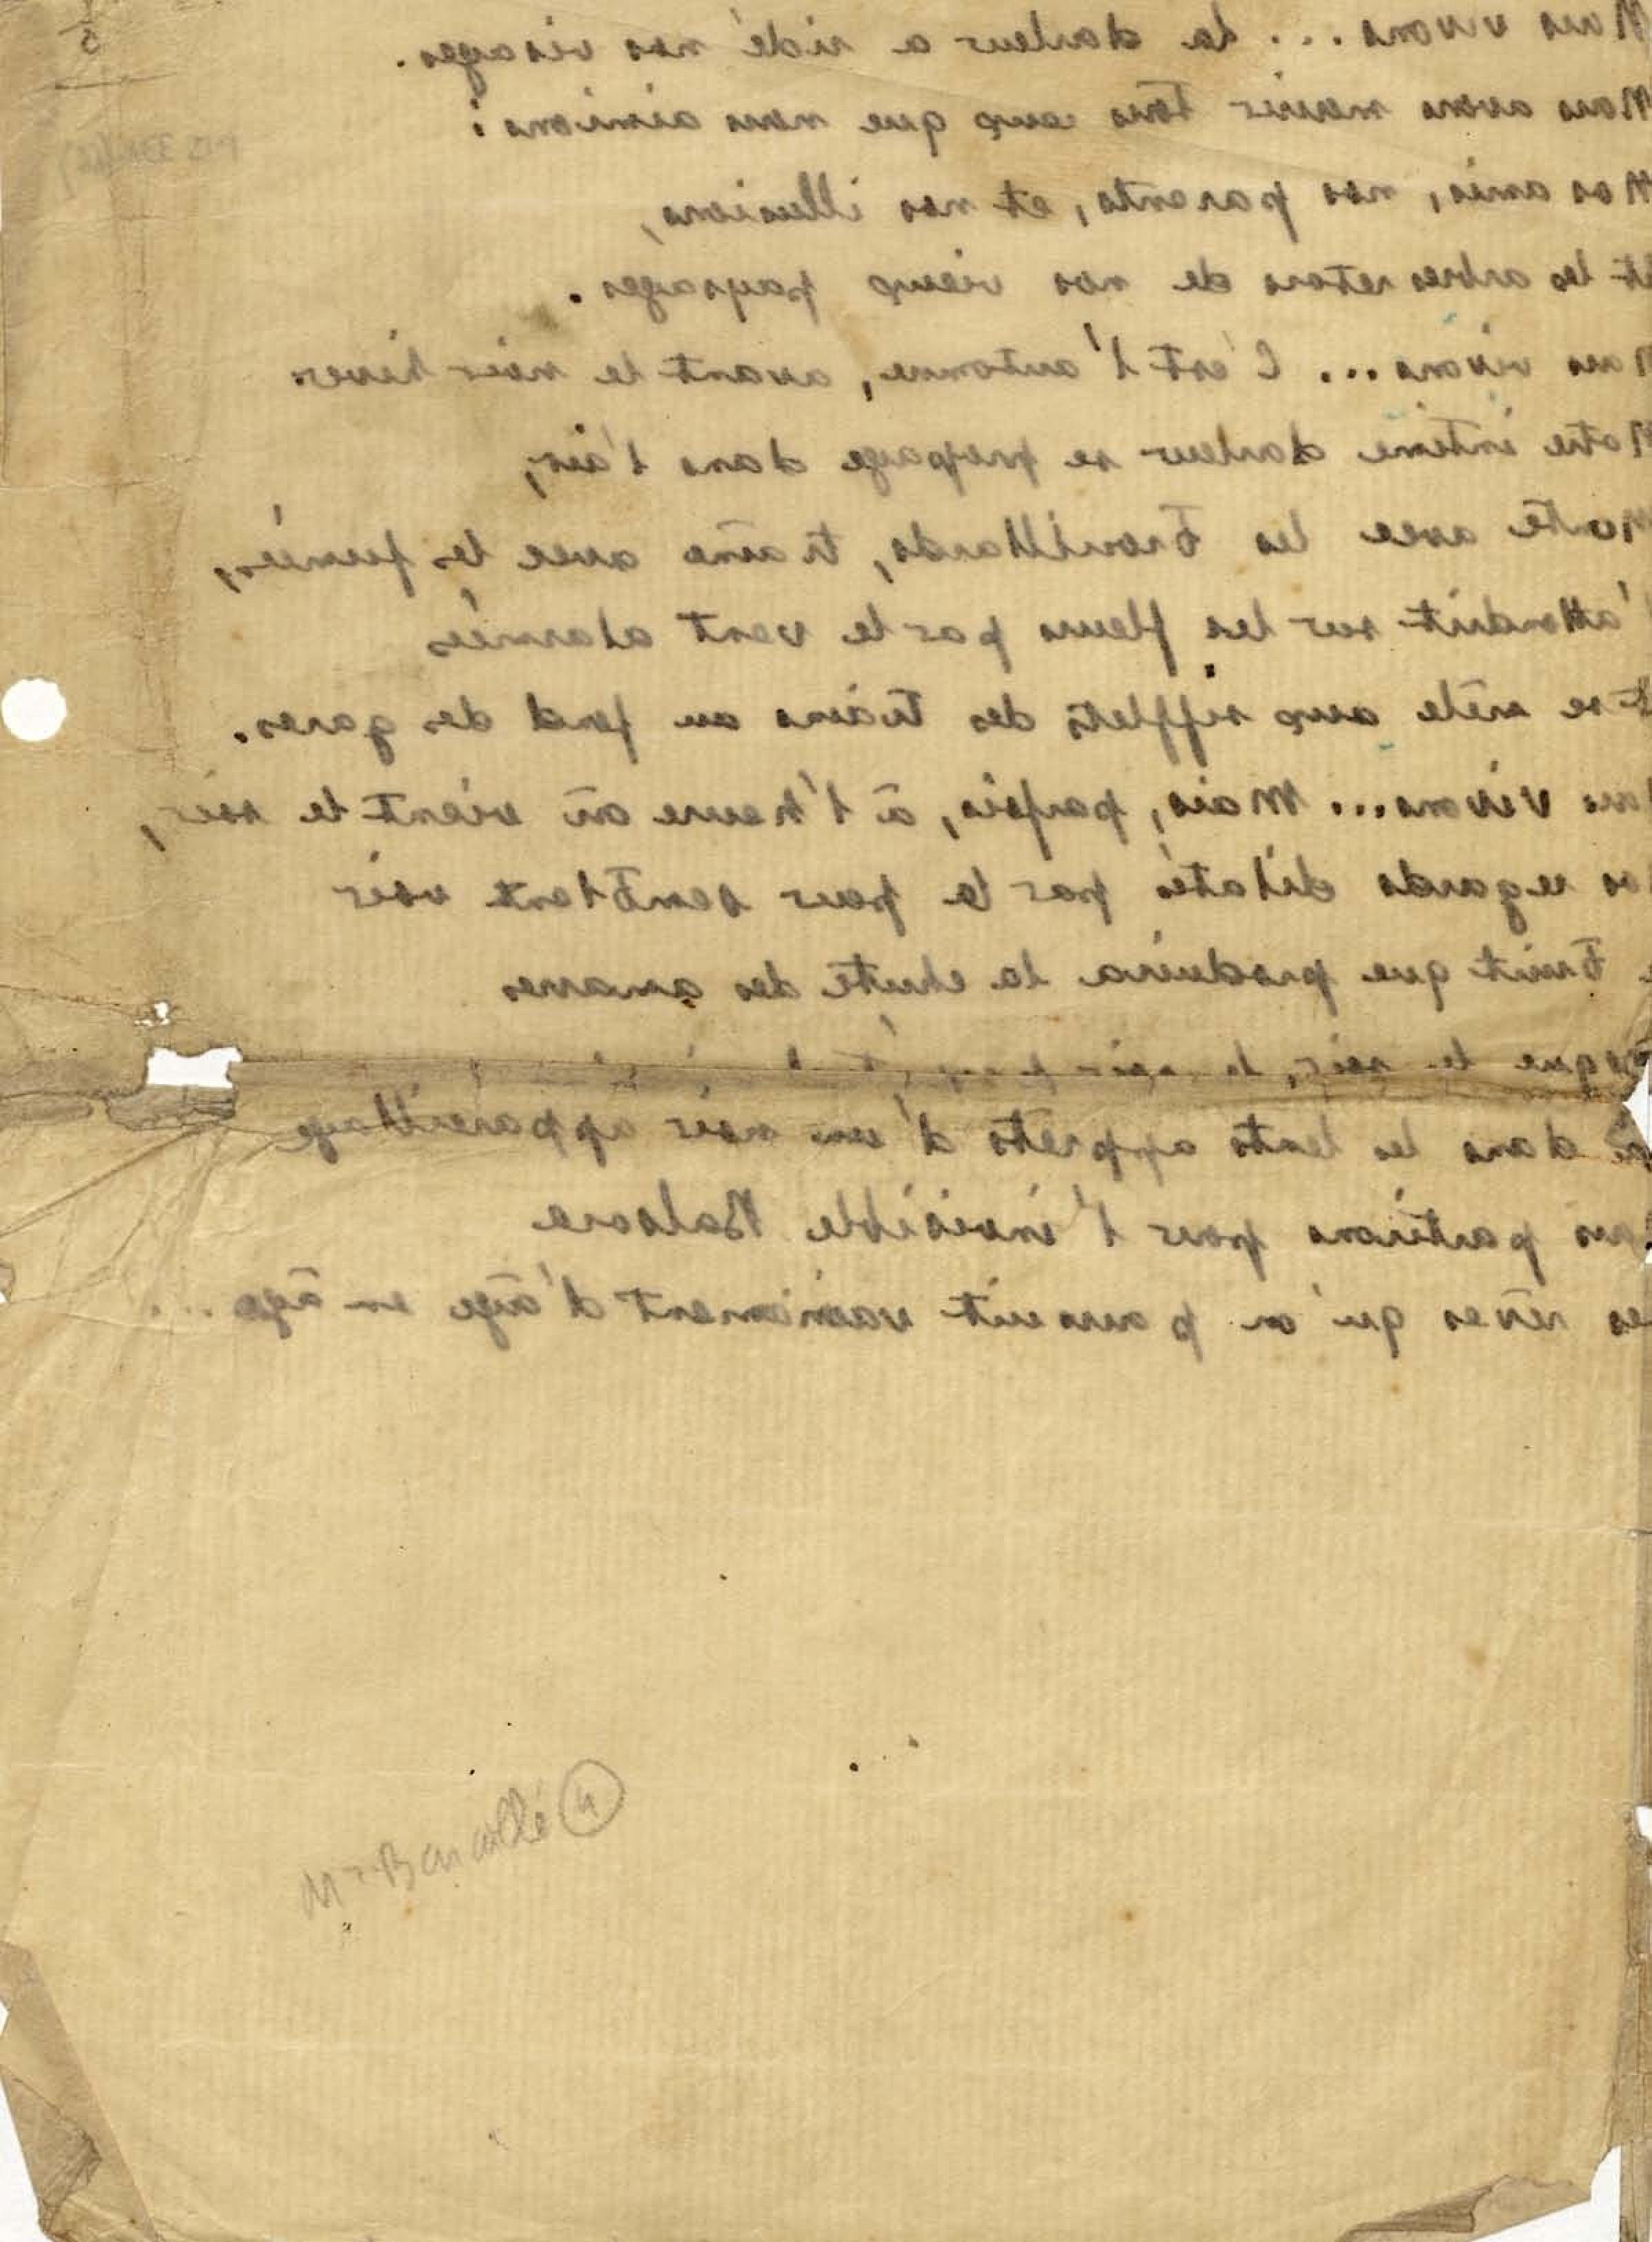 5
Nous vivons.... la douleur a ridé nos visages.
Nous avons mourir tous ceux que nous aimions :
Nos amis, nos parents, et nos illusions,
Et les arbres retors de nos vieux paysages.
Nous vivons... C'est l'automne, avant le noir hiver
Notre intime douleur se propage dans l'air,
Monte avec les brouillards, traîne avec les fumées,
S'attendrit sur les fleurs par le vent alarmées
Et se mêle aux sifflets des trains au fond des gares.
Nous vivons... Mais, parfois, à l'heure où vient le soir,
Nos regards dilatés par la peur semblent voir
Le bruit que produira la chute des amarres
le soir, le
dans les lents apprêts d'un noir appareillage
Nous partirons pour l'invisible
Des rêves qu'on poursuit vainement d'âge en âge...
4